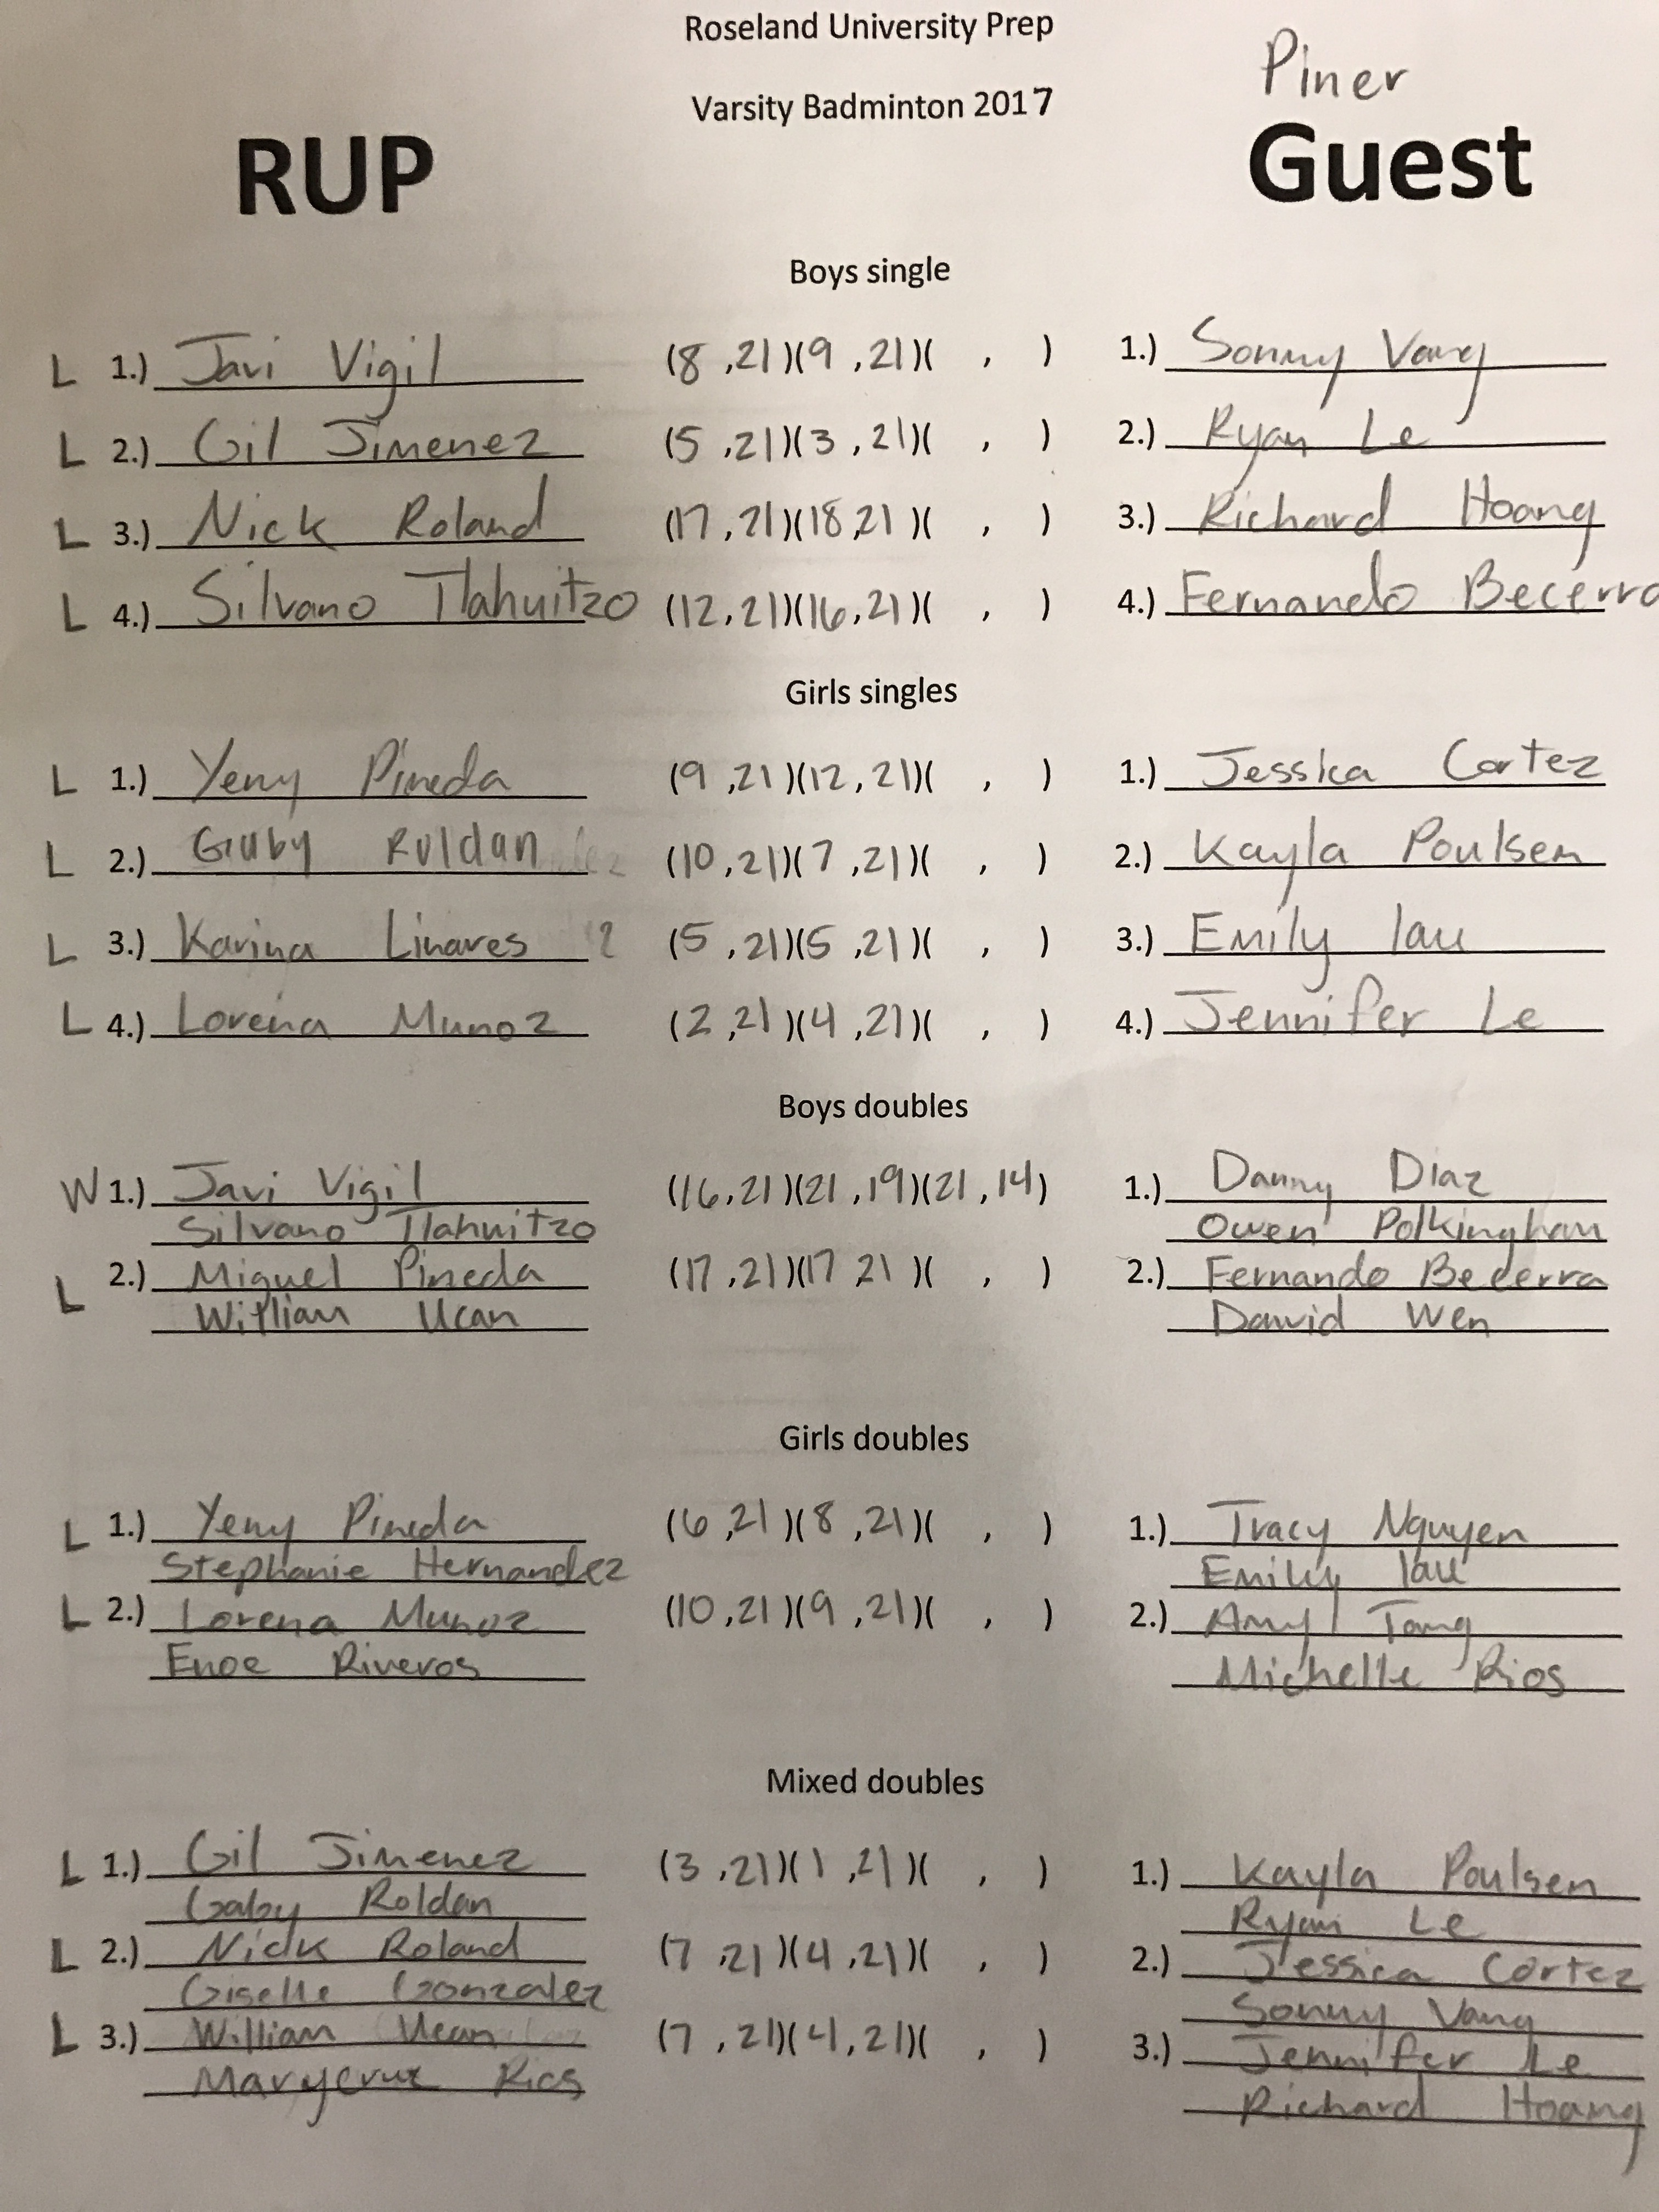 Roseland University Prep
Piner
Varsity Badminton 2017
RUP Guest
Boys single
L 1.) Javi Vigil (8 ,21)(9 ,21)( , ) 1.) Sonny Vang
L 2.) Gil Jimenez (5 ,21)(3 ,21)( , ) 2.) Ryan Le
L 3.) Nick Roland (17,21)(18,21)( , ) 3.) Richard Hoang
L 4.) Silvano Tlahuitzo (12,21)(16,21)( , ) 4.) Fernando Becerra
Girls singles
L 1.) Yeny Pineda (9 ,21)(12,21)( , ) 1.) Jessica Cortez
L 2.) Gaby Roldan (10,21)(7 ,21)( , ) 2.) Kayla Poulsen
L 3.) Karina Linares (5 ,21)(5 ,21)( , ) 3.) Emily lau
L 4.) Lorena Munoz (2 ,21)(4 ,21)( , ) 4.) Jennifer Le
Boys doubles
W 1.) Javi Vigil (16,21)(21,19)(21,14) 1.) Danny Diaz
Silvano Tlahuitzo Owen Polkingham
L 2.) Miguel Pineda (17,21)(17 21 )( , ) 2.) Fernando Becerra
William Ucan David Wen
Girls doubles
L 1.) Yeny Pineda (6 ,21)(8 ,21)( , ) 1.) Tracy Nguyen
Stephanie Hernandez Emily lau
L 2.) Lorena Munoz (10,21)(9 ,21)( , ) 2.) Amy Tang
Enoe Riveros Michelle Rios
Mixed doubles
L 1.) Gil Jimenez (3 ,21)(1 ,21)( , ) 1.) Kayla Poulsen
Gaby Roldan Ryan Le
L 2.) Nick Roland (7 ,21)(4 ,21)( , ) 2.) Jessica Cortez
Giselle Gonzalez Sonny Vang
L 3.) William Ucan (7 ,21)(4,21)( , ) 3.) Jennifer Le
Marycruz Rios Richard Hoang